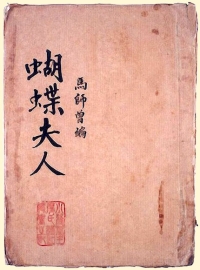 蝴蝶夫人
馬師曾編